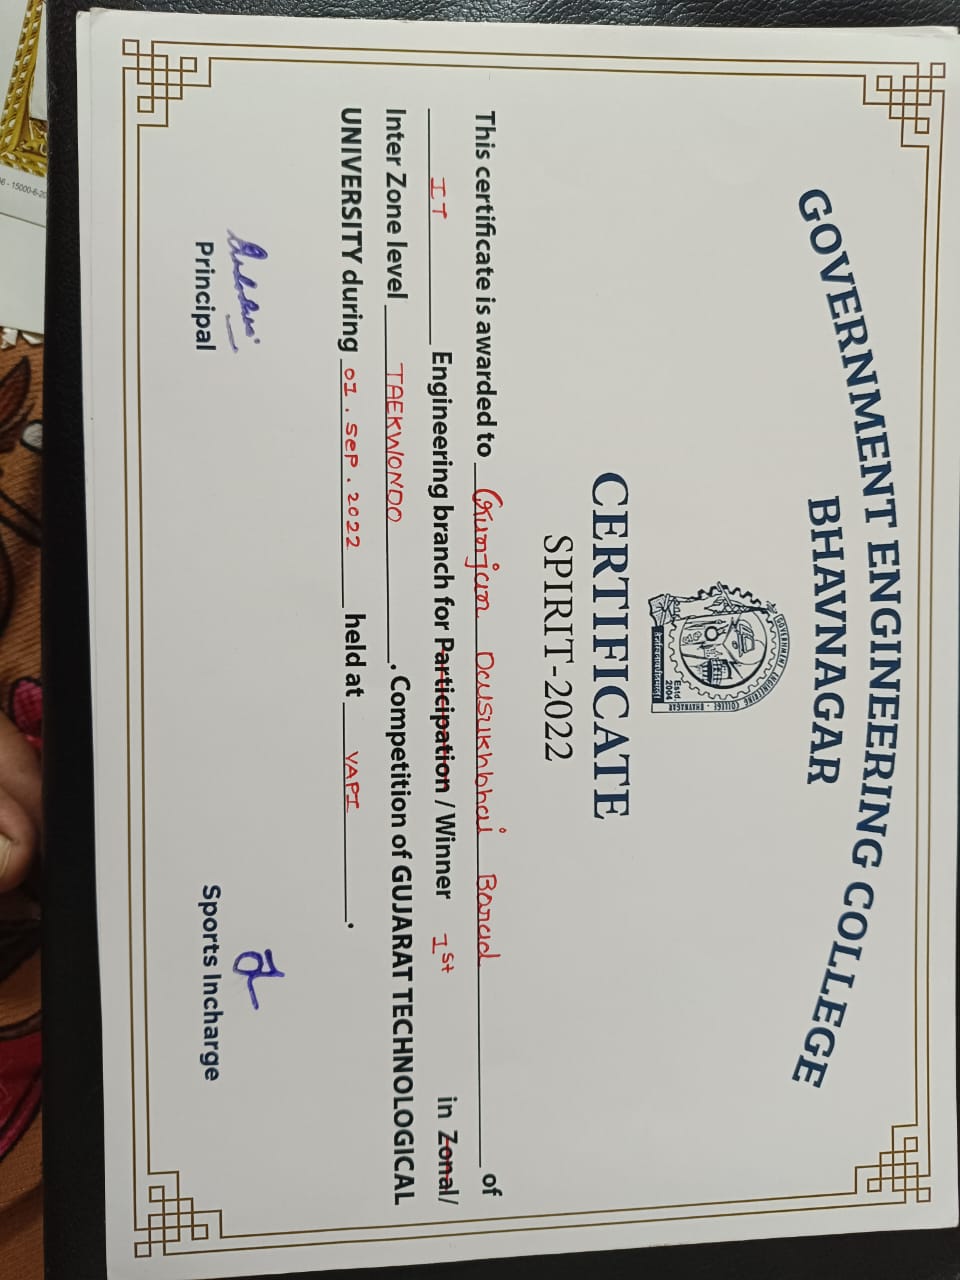 GOVERNMENT ENGINEERING COLLEGE
BHAVNAGAR
GOVERNMENT ENGINEERING COLLEGE - BHAVNAGAR
Estd.
2004
CERTIFICATE
SPIRIT-2022
This certificate is awarded to Gunjan Dalsukhbhai Barad of
IT Engineering branch for Participation / Winner 1st in Zonal/
Inter Zone level TAEKWONDO . Competition of GUJARAT TECHNOLOGICAL
UNIVERSITY during 01 . SEP . 2022 held at VAPI .
Principal
Sports Incharge